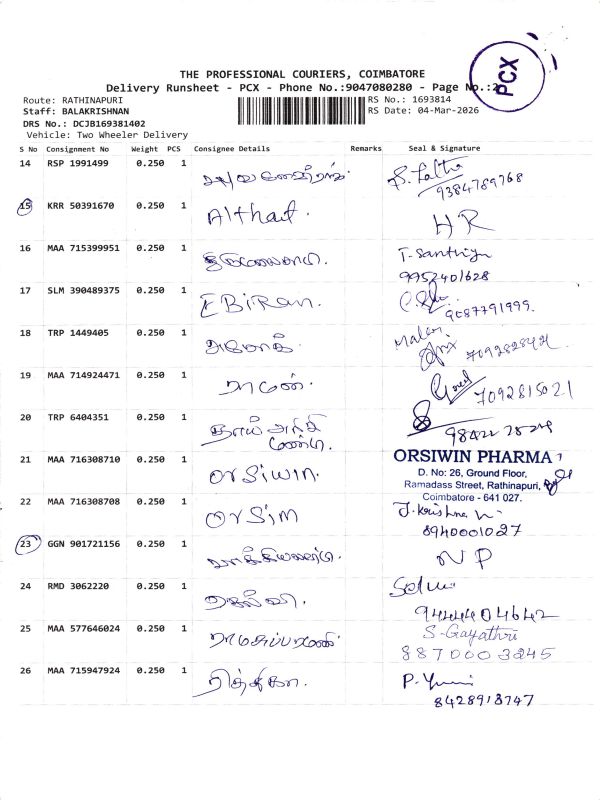 THE PROFESSIONAL COURIERS, COIMBATORE
Delivery Runsheet - PCX - Phone No.:9047080280 - Page No.:2
PCX
Route: RATHINAPURI
RS No.: 1693814
Staff: BALAKRISHNAN
RS Date: 04-Mar-2026
DRS No.: DCJB169381402
Vehicle: Two Wheeler Delivery
S No Consignment No Weight PCS Consignee Details Remarks Seal & Signature
14 RSP 1991499 0.250 1
9384789768
15 KRR 50391670 0.250 1 Althaf. HR
16 MAA 715399951 0.250 1 T. Santhiya
9952401628
17 SLM 390489375 0.250 1 EBiRan.
9087791999.
18 TRP 1449405 0.250 1 அசோக். Malar
19 MAA 714924471 0.250 1 ரமேண்.
7092815021
20 TRP 6404351 0.250 1 தாய் அறிகி
21 MAA 716308710 0.250 1 Orsiwin. ORSIWIN PHARMA
D. No: 26, Ground Floor,
Ramadass Street, Rathinapuri,
Coimbatore - 641 027.
22 MAA 716308708 0.250 1 Orsim J. Krishna
8940001027
23 GGN 901721156 0.250 1 NP
24 RMD 3062220 0.250 1 செல்வி. Selvi
9444404642
25 MAA 577646024 0.250 1 S-Gayathri
8870003245
26 MAA 715947924 0.250 1 ரித்திகா.
8428913747